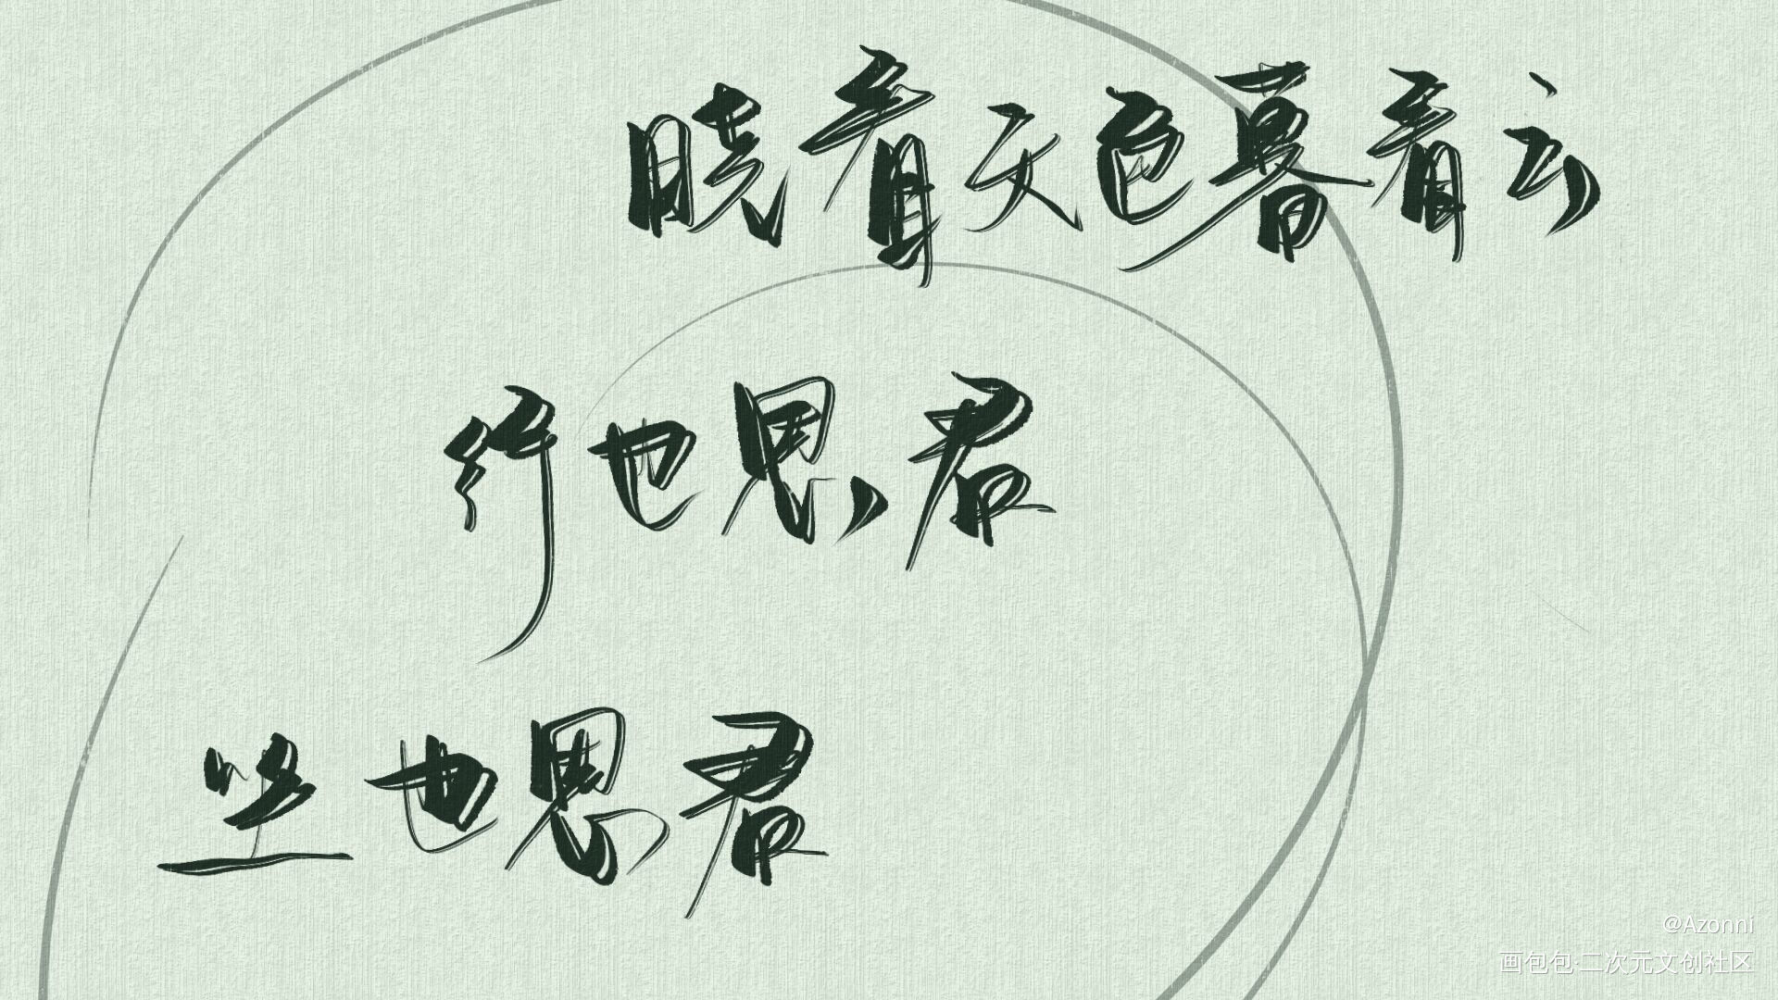 晓看天色暮看云
行也思君
坐也思君
@Azonni
画包包·二次元文创社区